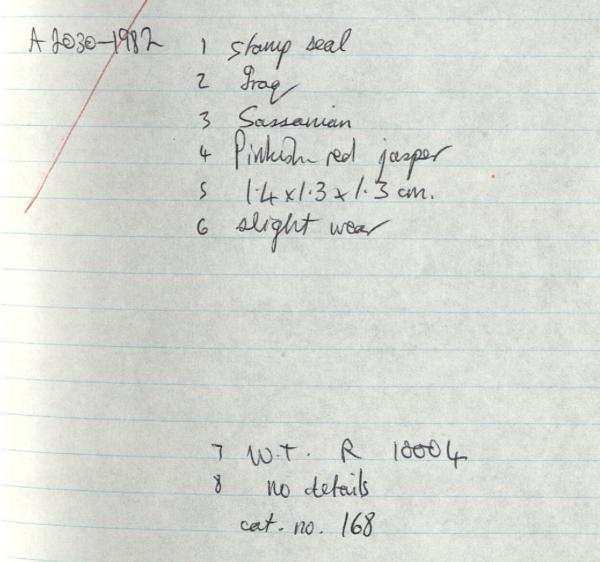 A 2030-1982 1 stamp seal
2 Iraq
3 Sassanian
4 Pinkish red jasper
5 1.4 x 1.3 x 1.3 cm.
6 slight wear
7 W.T. R 18004
8 no details
cat. no. 168